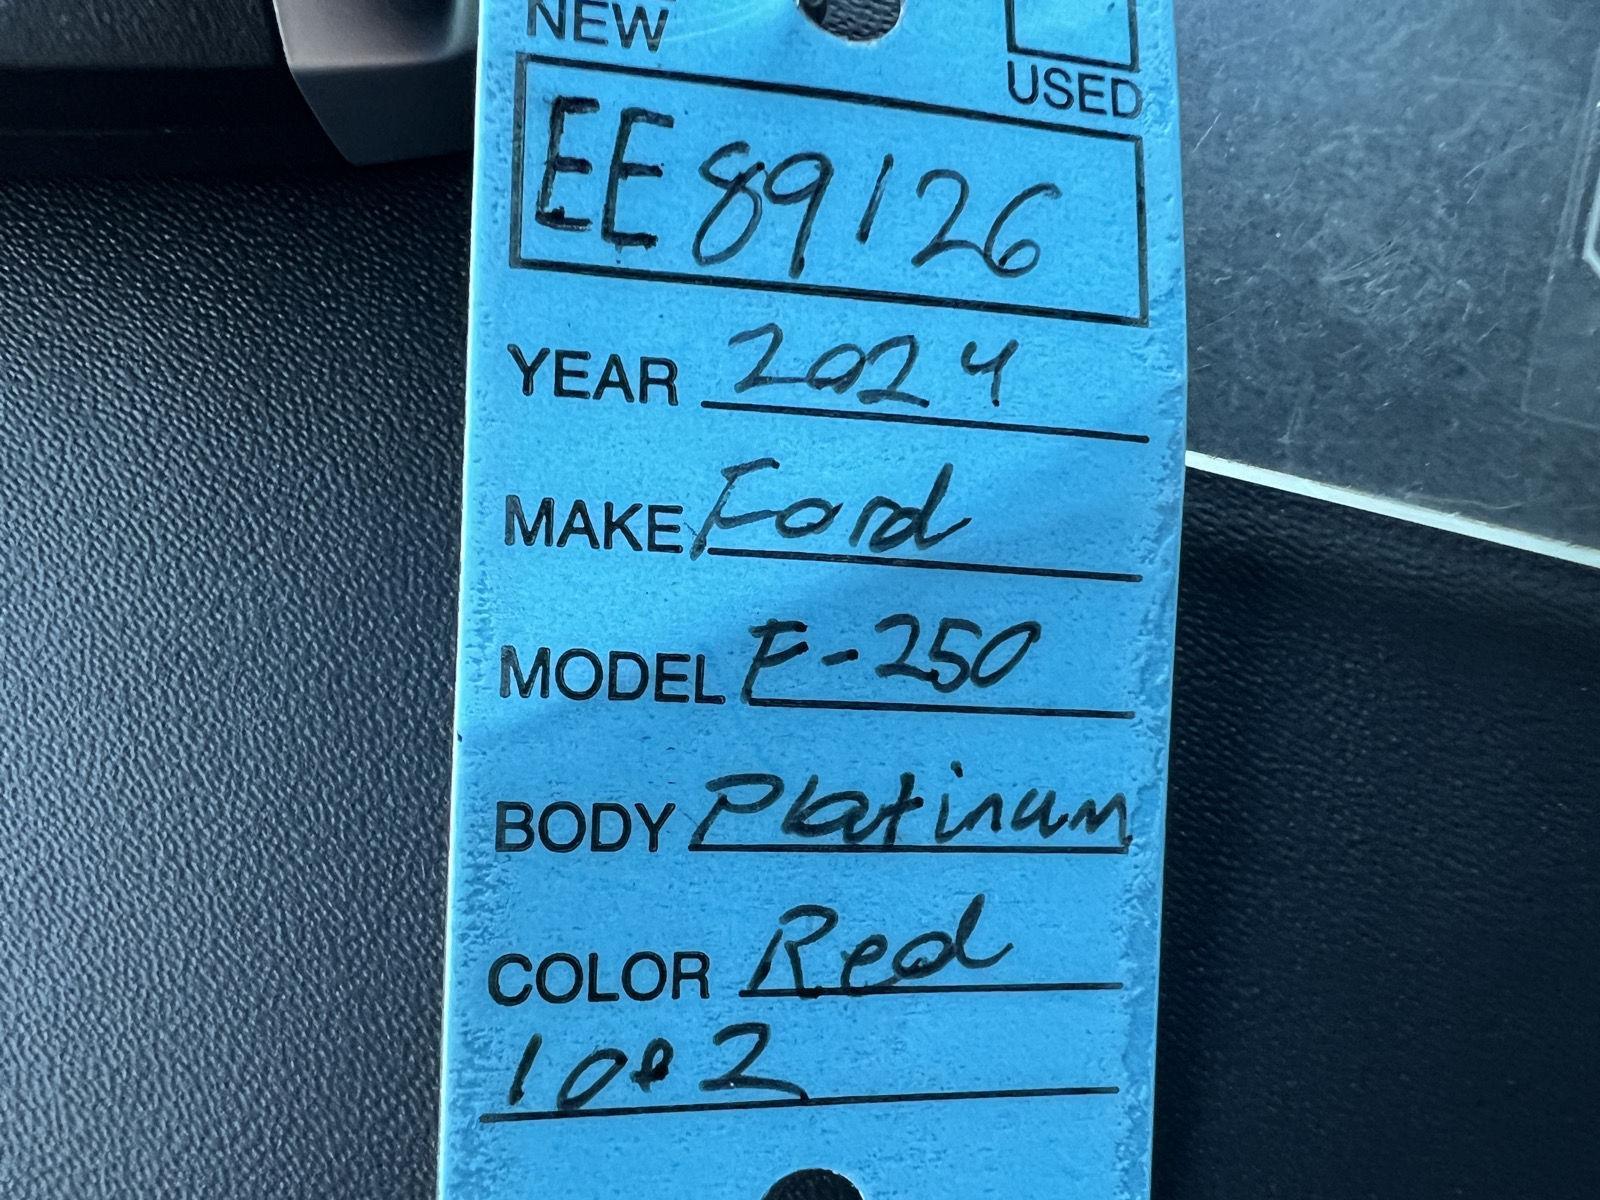 NEW USED
EE89126
YEAR 2024
MAKE Ford
MODEL F-250
BODY Platinum
COLOR Red
1 of 2